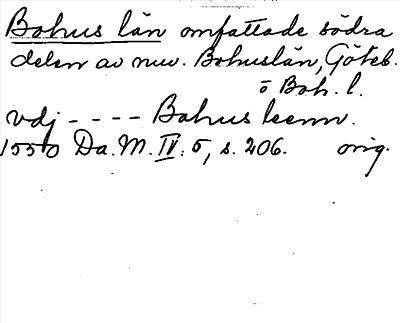 Bohus län omfattade södra
delen av nuv. Bohuslän, Göteb.
o Boh. l.
vdj - - - - Bohus leenn.
1550 Da. M. IV: 5, s. 206. orig.